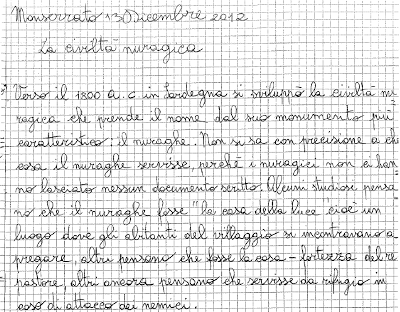 Monserrato 13 Dicembre 2012
La civiltà nuragica
Verso il 1800 a.c in Sardegna si sviluppò la civiltà nu
ragica che prende il nome dal suo monumento più
caratteristico: il nuraghe. Non si sa con precisione a che
cosa il nuraghe servisse, perché i nuragici non ci han
no lasciato nessun documento scritto. Alcuni studiosi pensa
no che il nuraghe fosse "la casa della luce" cioè un
luogo dove gli abitanti del villaggio si incontravano a
pregare, altri pensano che fosse la casa-fortezza del re
pastore, altri ancora pensano che servisse da rifugio in
caso di attacco dei nemici.